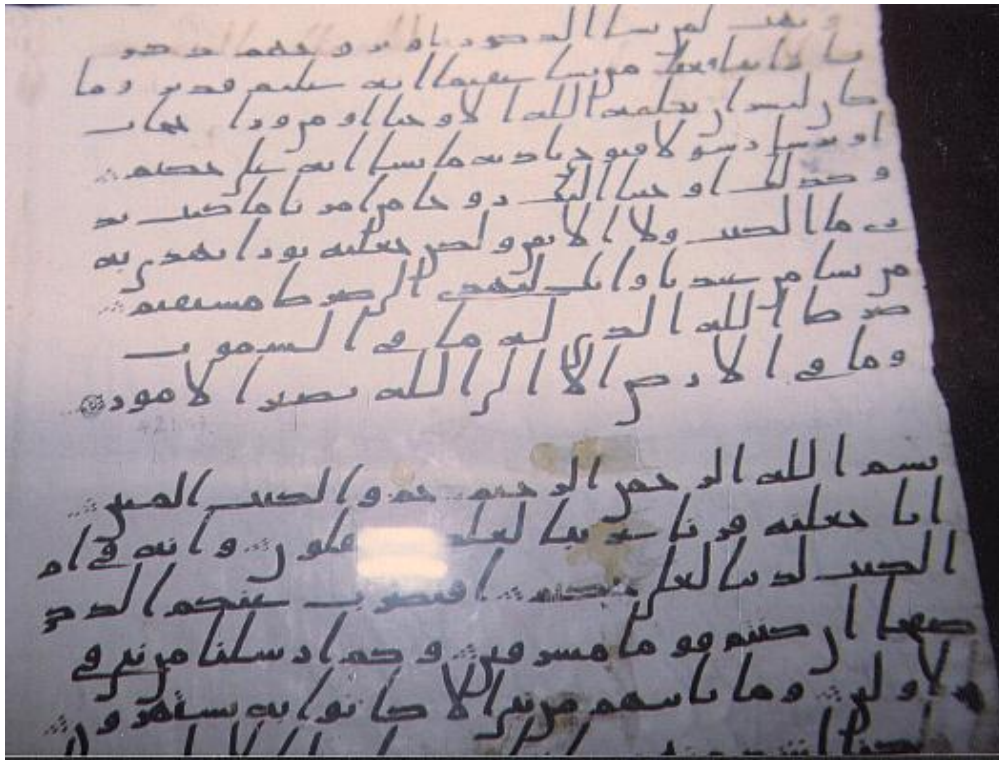 ويهب لمن يشا الذكور او يزوجهم ذكر
نا واناثا ويجعل من يشا عقيما انه عليم قدير وما
كان لبشر ان يكلمه الله الا وحيا او من ورا حجاب
او يرسل رسولا فيوحي باذنه ما يشا انه علي حكيم
وكذلك اوحينا اليك روحا من امرنا ما كنت تد
ري ما الكتب ولا الايمن ولكن جعلنه نورا نهدي به
من نشا من عبدنا وانك لتهدي الى صرط مستقيم
صرط الله الذي له ما في السموت
وما في الارض الا الى الله تصير الامور
بسم الله الرحمن الرحيم حم والكتب المبين
انا جعلنه قرنا عربيا لعلكم تعقلون وانه في ام
الكتب لدينا لعلي حكيم افنضرب عنكم الذكر
صفحا ان كنتم قوما مسرفين وكم ارسلنا من نبي في
الاولين وما ياتيهم من نبي الا كانوا به يستهزون